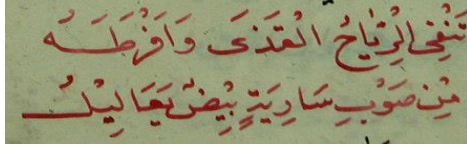 تَنْفِى الرِّيَاحُ الْقَذَى وَافْرَطَهُ
مِنْ صَوْبِ سَارِيَةٍ بِيْضٌ يَعَالِيْلُ